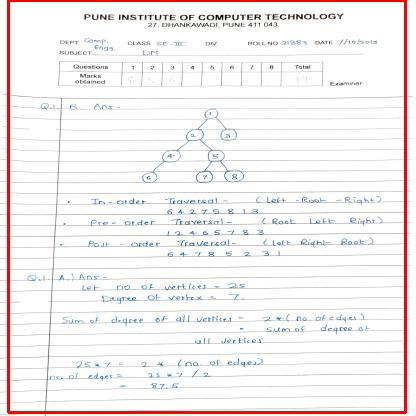 PUNE INSTITUTE OF COMPUTER TECHNOLOGY
27, DHANKAWADI, PUNE 411 043.
DEPT Comp. Engg. CLASS SE-III DIV. ROLL NO 21883 DATE 7/10/2018
SUBJECT DM
Questions 1 2 3 4 5 6 7 8 Total
Marks obtained
Examiner
Q.1. B. Ans -
1
2 3
4 5
6 7 8
• In-order Traversal - (Left -Root -Right)
6 4 2 7 5 8 1 3
• Pre-order Traversal - (Root Left Right)
1 2 4 6 5 7 8 3
• Post-order Traversal - (Left Right Root)
6 4 7 8 5 2 3 1
Q.1. A.) Ans -
Let no of vertices = 25
Degree of vertex = 7.
Sum of degree of all vertices = 2 * (no. of edges)
= sum of degree of
all vertices
25 * 7 = 2 * (no of edges)
no of edges = 25 * 7 / 2
= 87.5